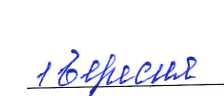 1 Вересня